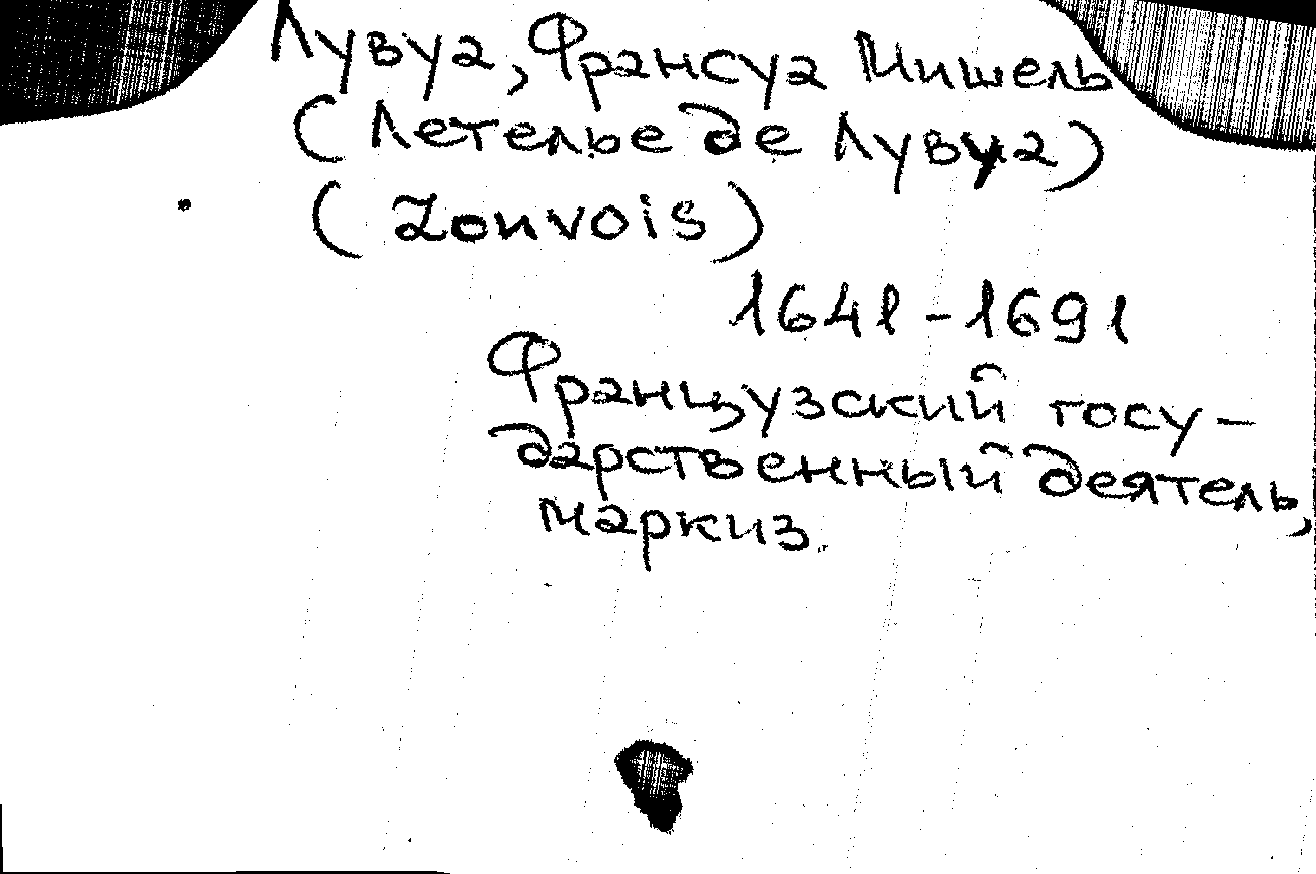 Лувуа, Франсуа Мишель
(Летелье де Лувуа)
(Louvois)
1641-1691
Французский госу-
дарственный деятель,
маркиз.